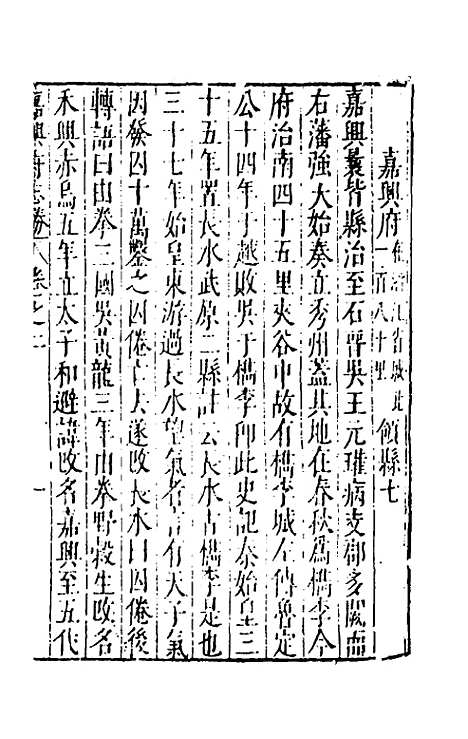 嘉興府在浙江省城北一百八十里領縣七
嘉興曩皆縣治至石晉吳王元瓘病支郡多闕而
右藩強大始奏立秀州蓋其地在春秋爲檇李今
府治南四十五里夾谷中故有檇李城左傳魯定
公十四年于越敗吳于檇李卽此史記秦始皇三
十五年置長水武原二縣註云長水古檇李是也
三十七年始皇東游過長水望氣者言有天子氣
因發囚十萬鑿之囚倦亡大遂改長水曰囚倦後
轉語曰由拳三國吳黃龍三年由拳野穀生改名
禾興赤烏五年立太子和避諱改名嘉興至五代
嘉興府志勝 卷之二 一